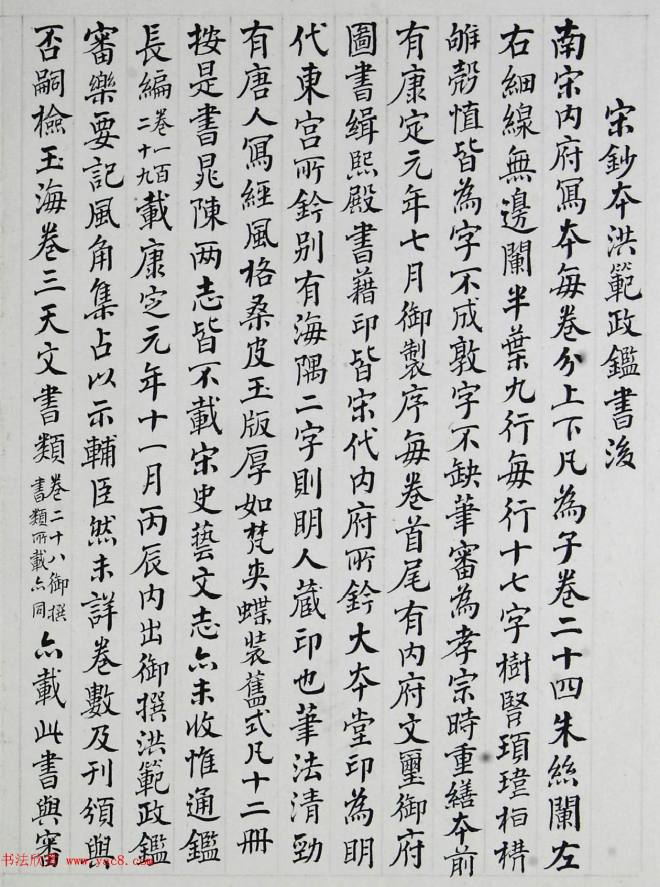 宋鈔本洪範政鑑書後
南宋內府寫本每卷分上下凡為子卷二十四朱絲闌左
右細線無邊闌半葉九行每行十七字樹豎頊瑋桓構
雊慤慎皆為字不成敦字不缺筆審為孝宗時重繕本前
有康定元年七月御製序每卷首尾有內府文璽御府
圖書緝熙殿書籍印皆宋代內府所鈐大本堂印為明
代東宮所鈐別有海隅二字則明人藏印也筆法清勁
有唐人寫經風格桑皮玉版厚如梵夾蝶裝舊式凡十二冊
按是書晁陳兩志皆不載宋史藝文志亦未收惟通鑑
長編卷一百二十九載康定元年十一月丙辰內出御撰洪範政鑑
審樂要記風角集占以示輔臣然未詳卷數及刊頒與
否嗣檢玉海卷三天文書類卷二十八御撰書類所載亦同亦載此書與審
书法欣赏 www.yac8.com